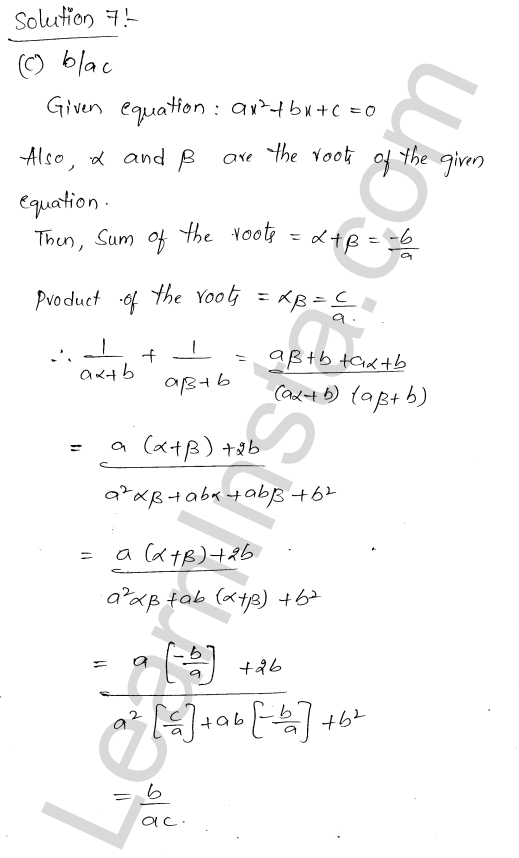 Solution 7:-
(C) b/ac
Given equation : ax²+bx+c=0
Also, α and β are the roots of the given
equation.
Then, Sum of the roots = α+β = -b/a
Product of the roots = αβ = c/a.
∴ 1/(aα+b) + 1/(aβ+b) = (aβ+b+aα+b)/((aα+b)(aβ+b))
= (a(α+β)+2b)/(a²αβ+abα+abβ+b²)
= (a(α+β)+2b)/(a²αβ+ab(α+β)+b²)
= (a[-b/a]+2b)/(a²[c/a]+ab[-b/a]+b²)
= b/ac.
LearnInsta.com